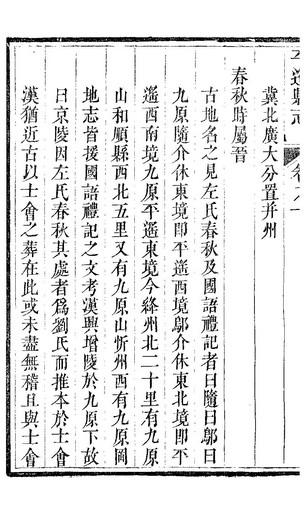 冀北廣大分置并州
春秋時屬晉
古地名之見左氏春秋及國語禮記者曰隨曰鄔曰
九原隨介休東境即平遙西境鄔介休東北境即平
遙西南境九原平遙東境今絳州北二十里有九原
山和順縣西北五里又有九原山忻州西有九原岡
地志皆援國語禮記之文考漢興增陵於九原下故
曰京陵因左氏春秋其處者為劉氏而推本於士會
漢猶近古以士會之葬在此或未盡無稽且與士會